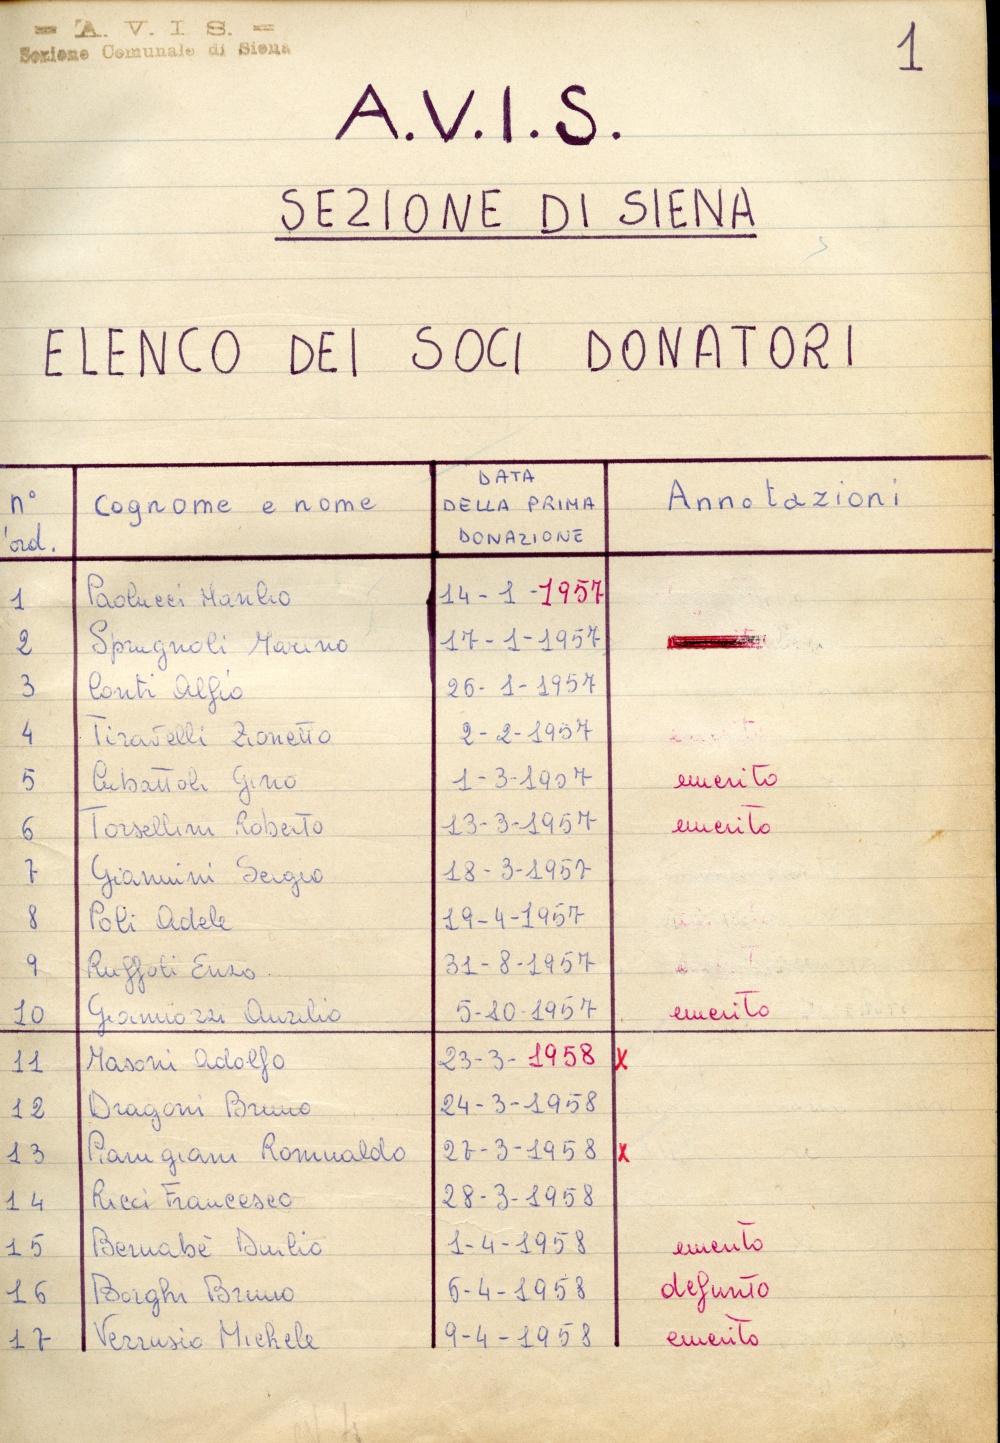 = A. V. I S. =
Sezione Comunale di Siena
1
A.V.I.S.
SEZIONE DI SIENA
ELENCO DEI SOCI DONATORI
n° ord. Cognome e nome DATA DELLA PRIMA DONAZIONE Annotazioni
1 Paolucci Manlio 14-1-1957
2 Sprugnoli Marino 17-1-1957
3 Conti Alfio 26-1-1957
4 Tiravelli Zionetto 2-2-1957
5 Gino 1-3-1957 emerito
6 Torsellini Roberto 13-3-1957 emerito
7 Giannini Sergio 18-3-1957
8 Poli Adele 19-4-1957
9 Ruffoli Enzo 31-8-1957
10 Giannozzi Aurelio 5-10-1957 emerito
11 Masoni Adolfo 23-3-1958 x
12 Dragoni Bruno 24-3-1958
13 Pianigiani Romualdo 27-3-1958 x
14 Ricci Francesco 28-3-1958
15 Bernabè Duilio 1-4-1958 emerito
16 Borghi Bruno 6-4-1958 defunto
17 Verrusio Michele 9-4-1958 emerito